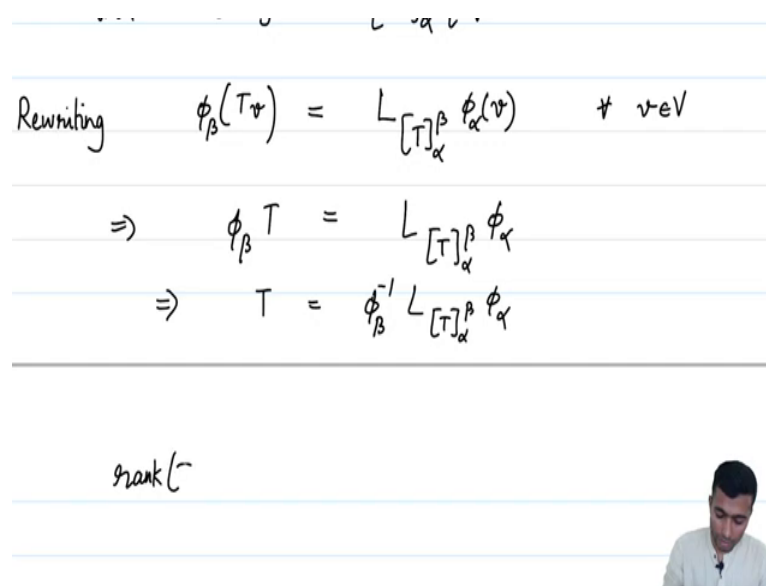 Rewriting ϕ_β(Tv) = L_{[T]_α^β} ϕ_α(v) ∀ v∈V
⇒ ϕ_β T = L_{[T]_α^β} ϕ_α
⇒ T = ϕ_β^{-1} L_{[T]_α^β} ϕ_α
rank(